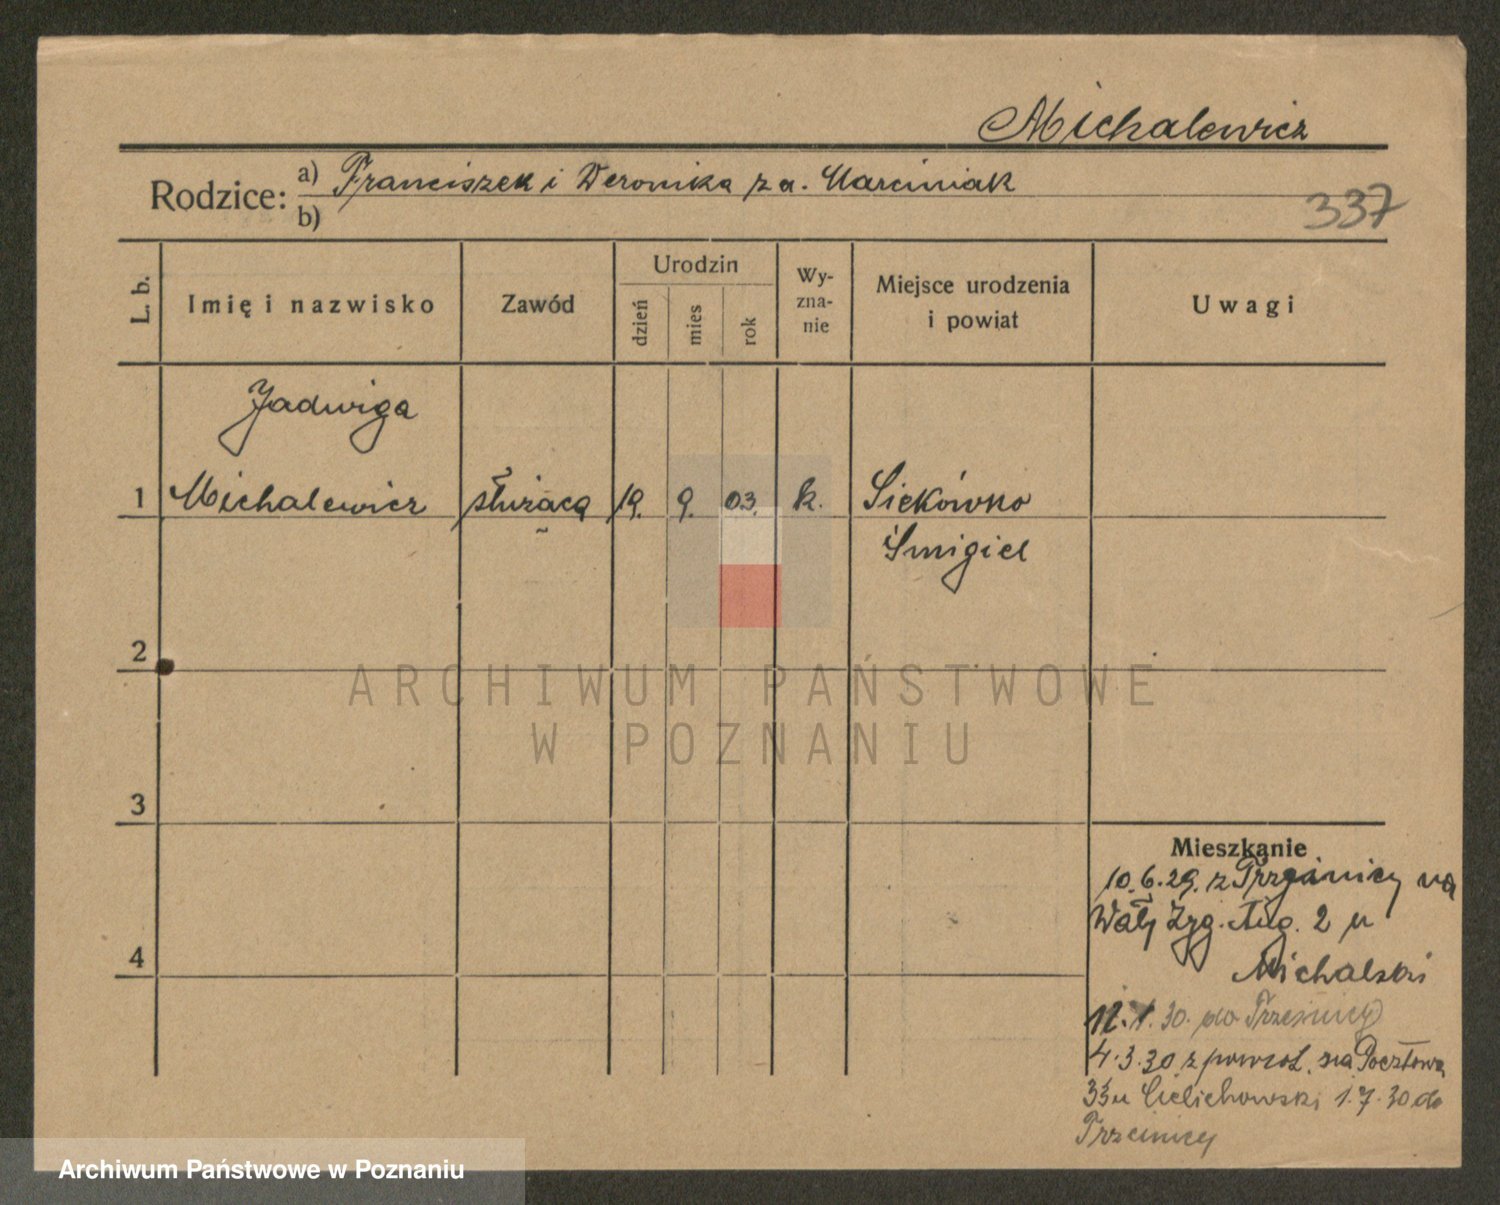 Michalewicz
Rodzice: a) Franciszek i Weronika z d. Marciniak
b)
337
L. b.
Imię i nazwisko
Zawód
Urodzin
dzień
mies
rok
Wy-
zna-
nie
Miejsce urodzenia
i powiat
Uwagi
Jadwiga
1 Michalewicz służąca 19. 9. 03. k. Siekówko
Śmigiel
2
3
4
Mieszkanie
10.6.29. z na
Wały Zyg. Aug. 2 u
Michalski
12.1.30. do
4.3.30 z powrot. na Pocztowa
33 u Cielichowski 1.7.30 do
Trzcinicy
ARCHIWUM PAŃSTWOWE
W POZNANIU
Archiwum Państwowe w Poznaniu